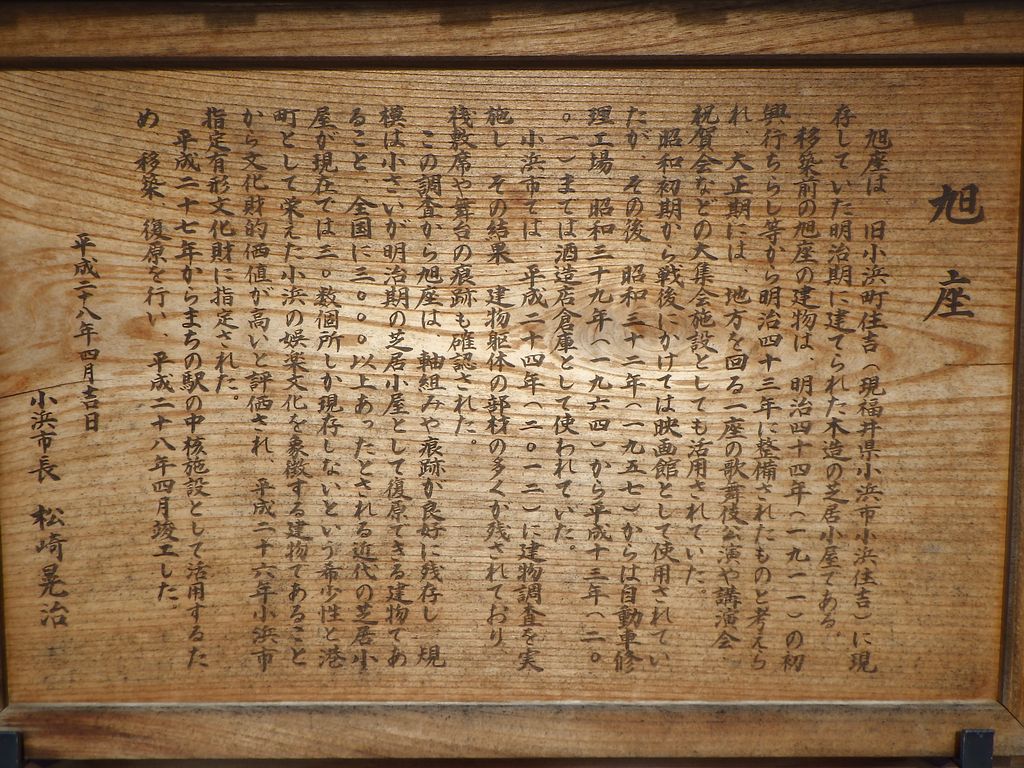 旭座
旭座は 旧小浜町住吉(現福井県小浜市小浜住吉)に現
存していた明治期に建てられた木造の芝居小屋である。
移築前の旭座の建物は、明治四十四年(一九一一)の初
興行ちらし等から明治四十三年に整備されたものと考えら
れ、大正期には、地方を回る一座の歌舞伎公演や講演会、
祝賀会などの大集会施設としても活用されていた。
昭和初期から戦後にかけては映画館として使用されてい
たが、その後 昭和三十二年(一九五七)からは自動車修
理工場 昭和三十九年(一九六四)から平成十三年(二〇
〇一)までは酒造店倉庫として使われていた。
小浜市では、平成二十四年(二〇一二)に建物調査を実
施し、その結果 建物躯体の部材の多くが残されており
桟敷席や舞台の痕跡も確認された。
この調査から旭座は、軸組みや痕跡が良好に残存し 規
模は小さいが明治期の芝居小屋として復原できる建物であ
ること、全国に三〇〇〇以上あったとされる近代の芝居小
屋が現在では三〇数個所しか現存しないという希少性と港
町として栄えた小浜の娯楽文化を象徴する建物であること
から文化財的価値が高いと評価され、平成二十六年小浜市
指定有形文化財に指定された。
平成二十七年からまちの駅の中核施設として活用するた
め 移築 復原を行い、平成二十八年四月竣工した。
平成二十八年四月吉日
小浜市長 松崎晃治